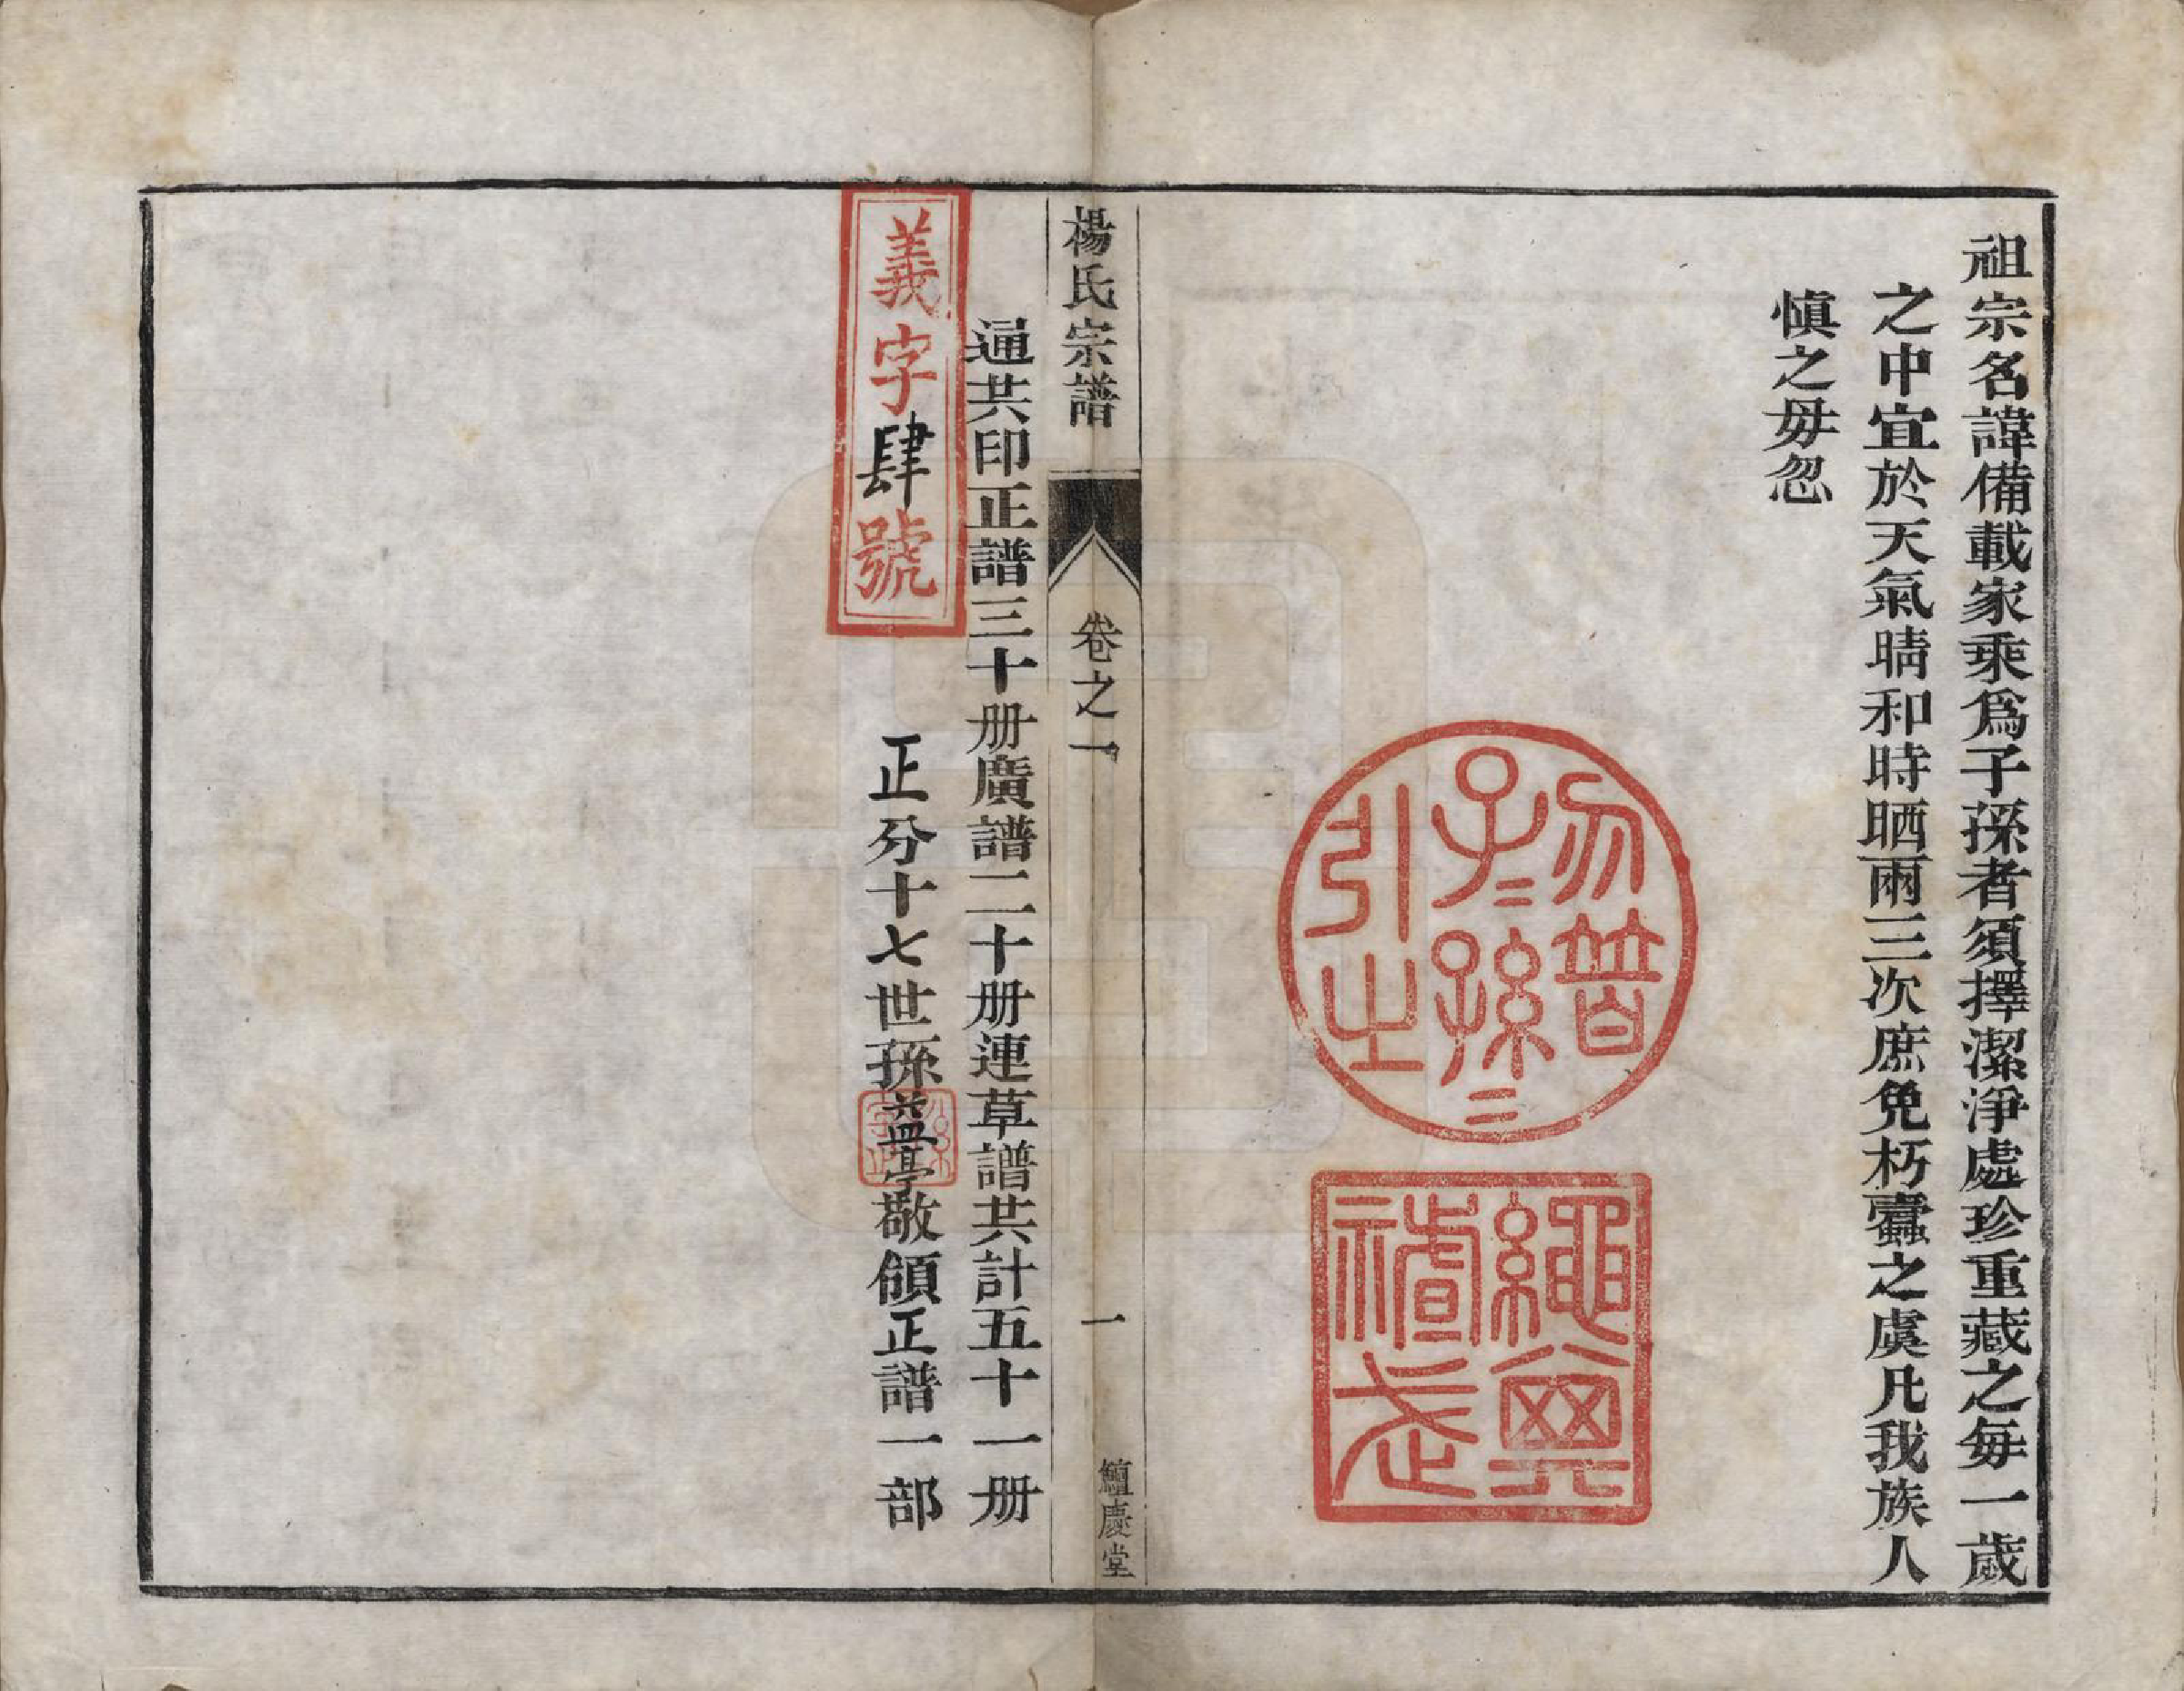 祖宗名諱備載家乘爲子孫者須擇潔淨處珍重藏之每一歲
之中宜於天氣晴和時晒兩三次庶免朽蠹之虞凡我族人
慎之毋忽
勿替
子二孫二
引之
繩其
祖武
楊氏宗譜
卷之一
一
鱣慶堂
通共印正譜三十册廣譜二十册連草譜共計五十一册
義字肆號
正分十七世孫益亭敬領正譜一部